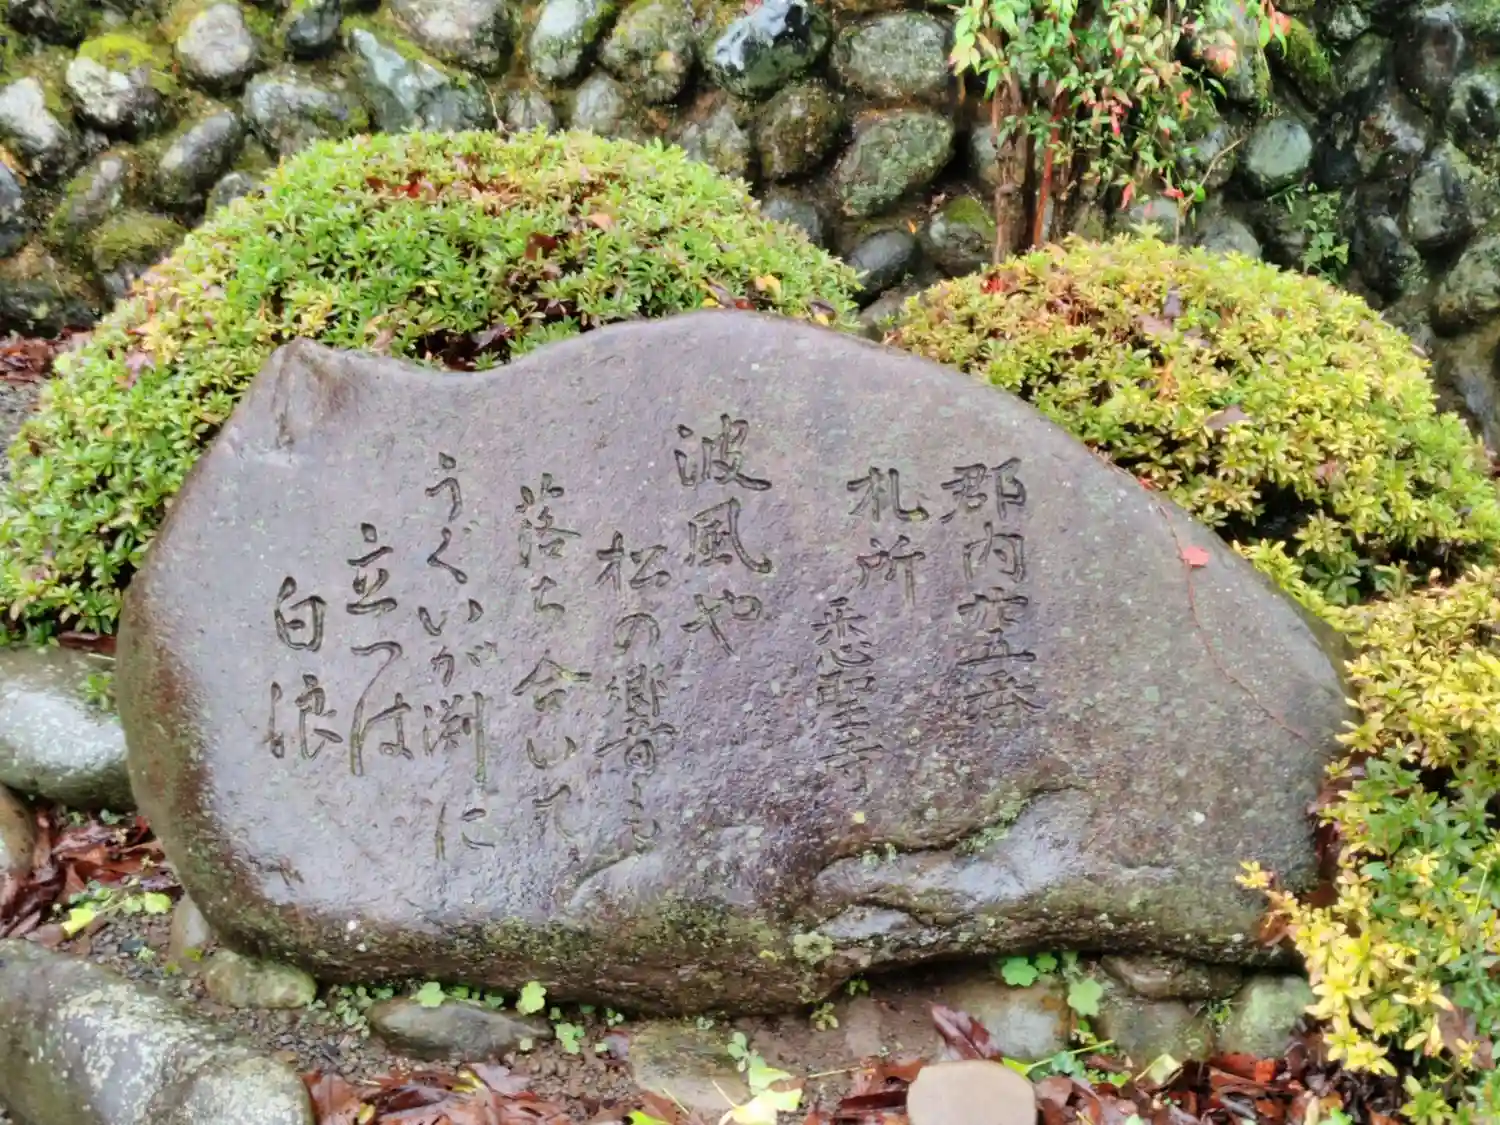 郡内廿五番
札所
悉聖寺
波風や
松の響も
落ち合いて
うぐいが渕に
立つは
白浪